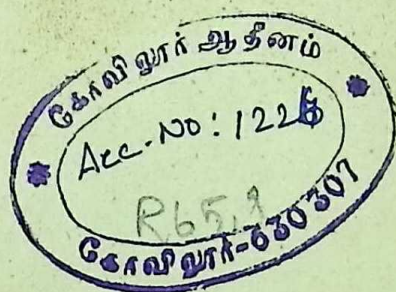 கோவிலூர் ஆதீனம்
Acc. No: 1226
R65,1
கோவிலூர்-630307